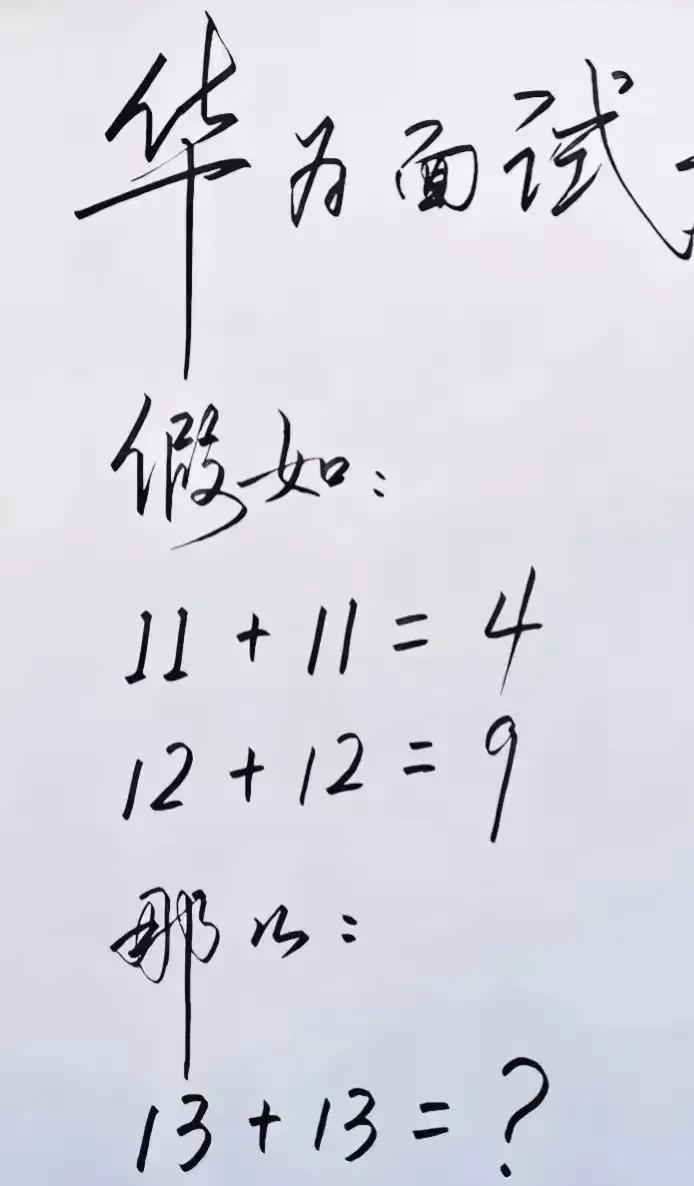 华为面试
假如:
11+11=4
12+12=9
那么:
13+13=?